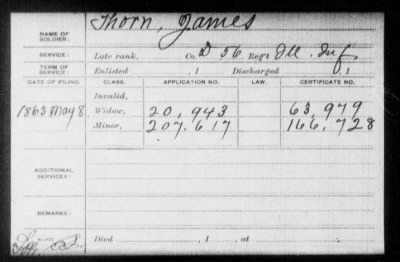 NAME OF SOLDIER: Thorn, James
SERVICE: Late rank, Co. D 56 Reg't Ill. Inf.
TERM OF SERVICE: Enlisted , 1 Discharged , 1
DATE OF FILING. CLASS. APPLICATION NO. LAW. CERTIFICATE NO.
Invalid,
1863 May 8. Widow, 20,943 63,979
Minor, 207.617 166,728
ADDITIONAL SERVICES:
REMARKS:
Died , 1 , at